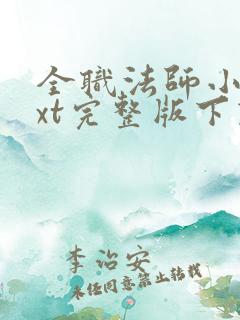 全职法师小
xt完整版下
李治安
未经同意禁止转载